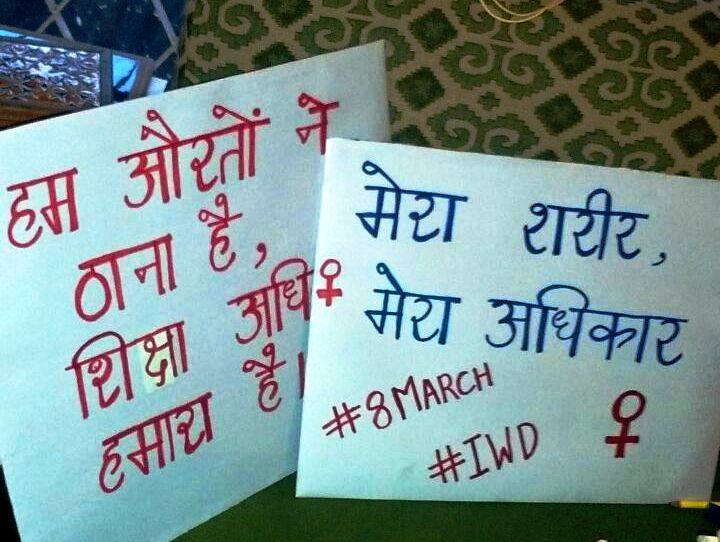 हम औरतों ने
ठाना है,
शिक्षा अधि
हमारा है।
मेरा शरीर,
मेरा अधिकार
#8MARCH
#IWD